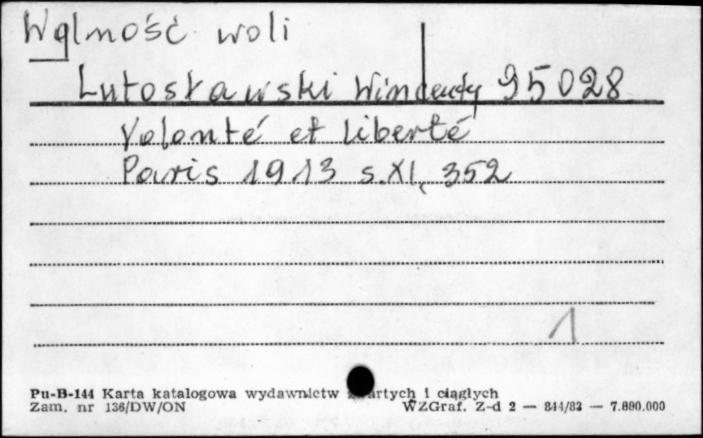 Wolność woli
Lutosławski Wincenty 95028
Volonté et liberté
Paris 1913 s. XI, 352
1
Pu-B-144 Karta katalogowa wydawnictw zwartych i ciągłych
Zam. nr 136/DW/ON WZGraf. Z-d 2 — 844/82 — 7.880.000